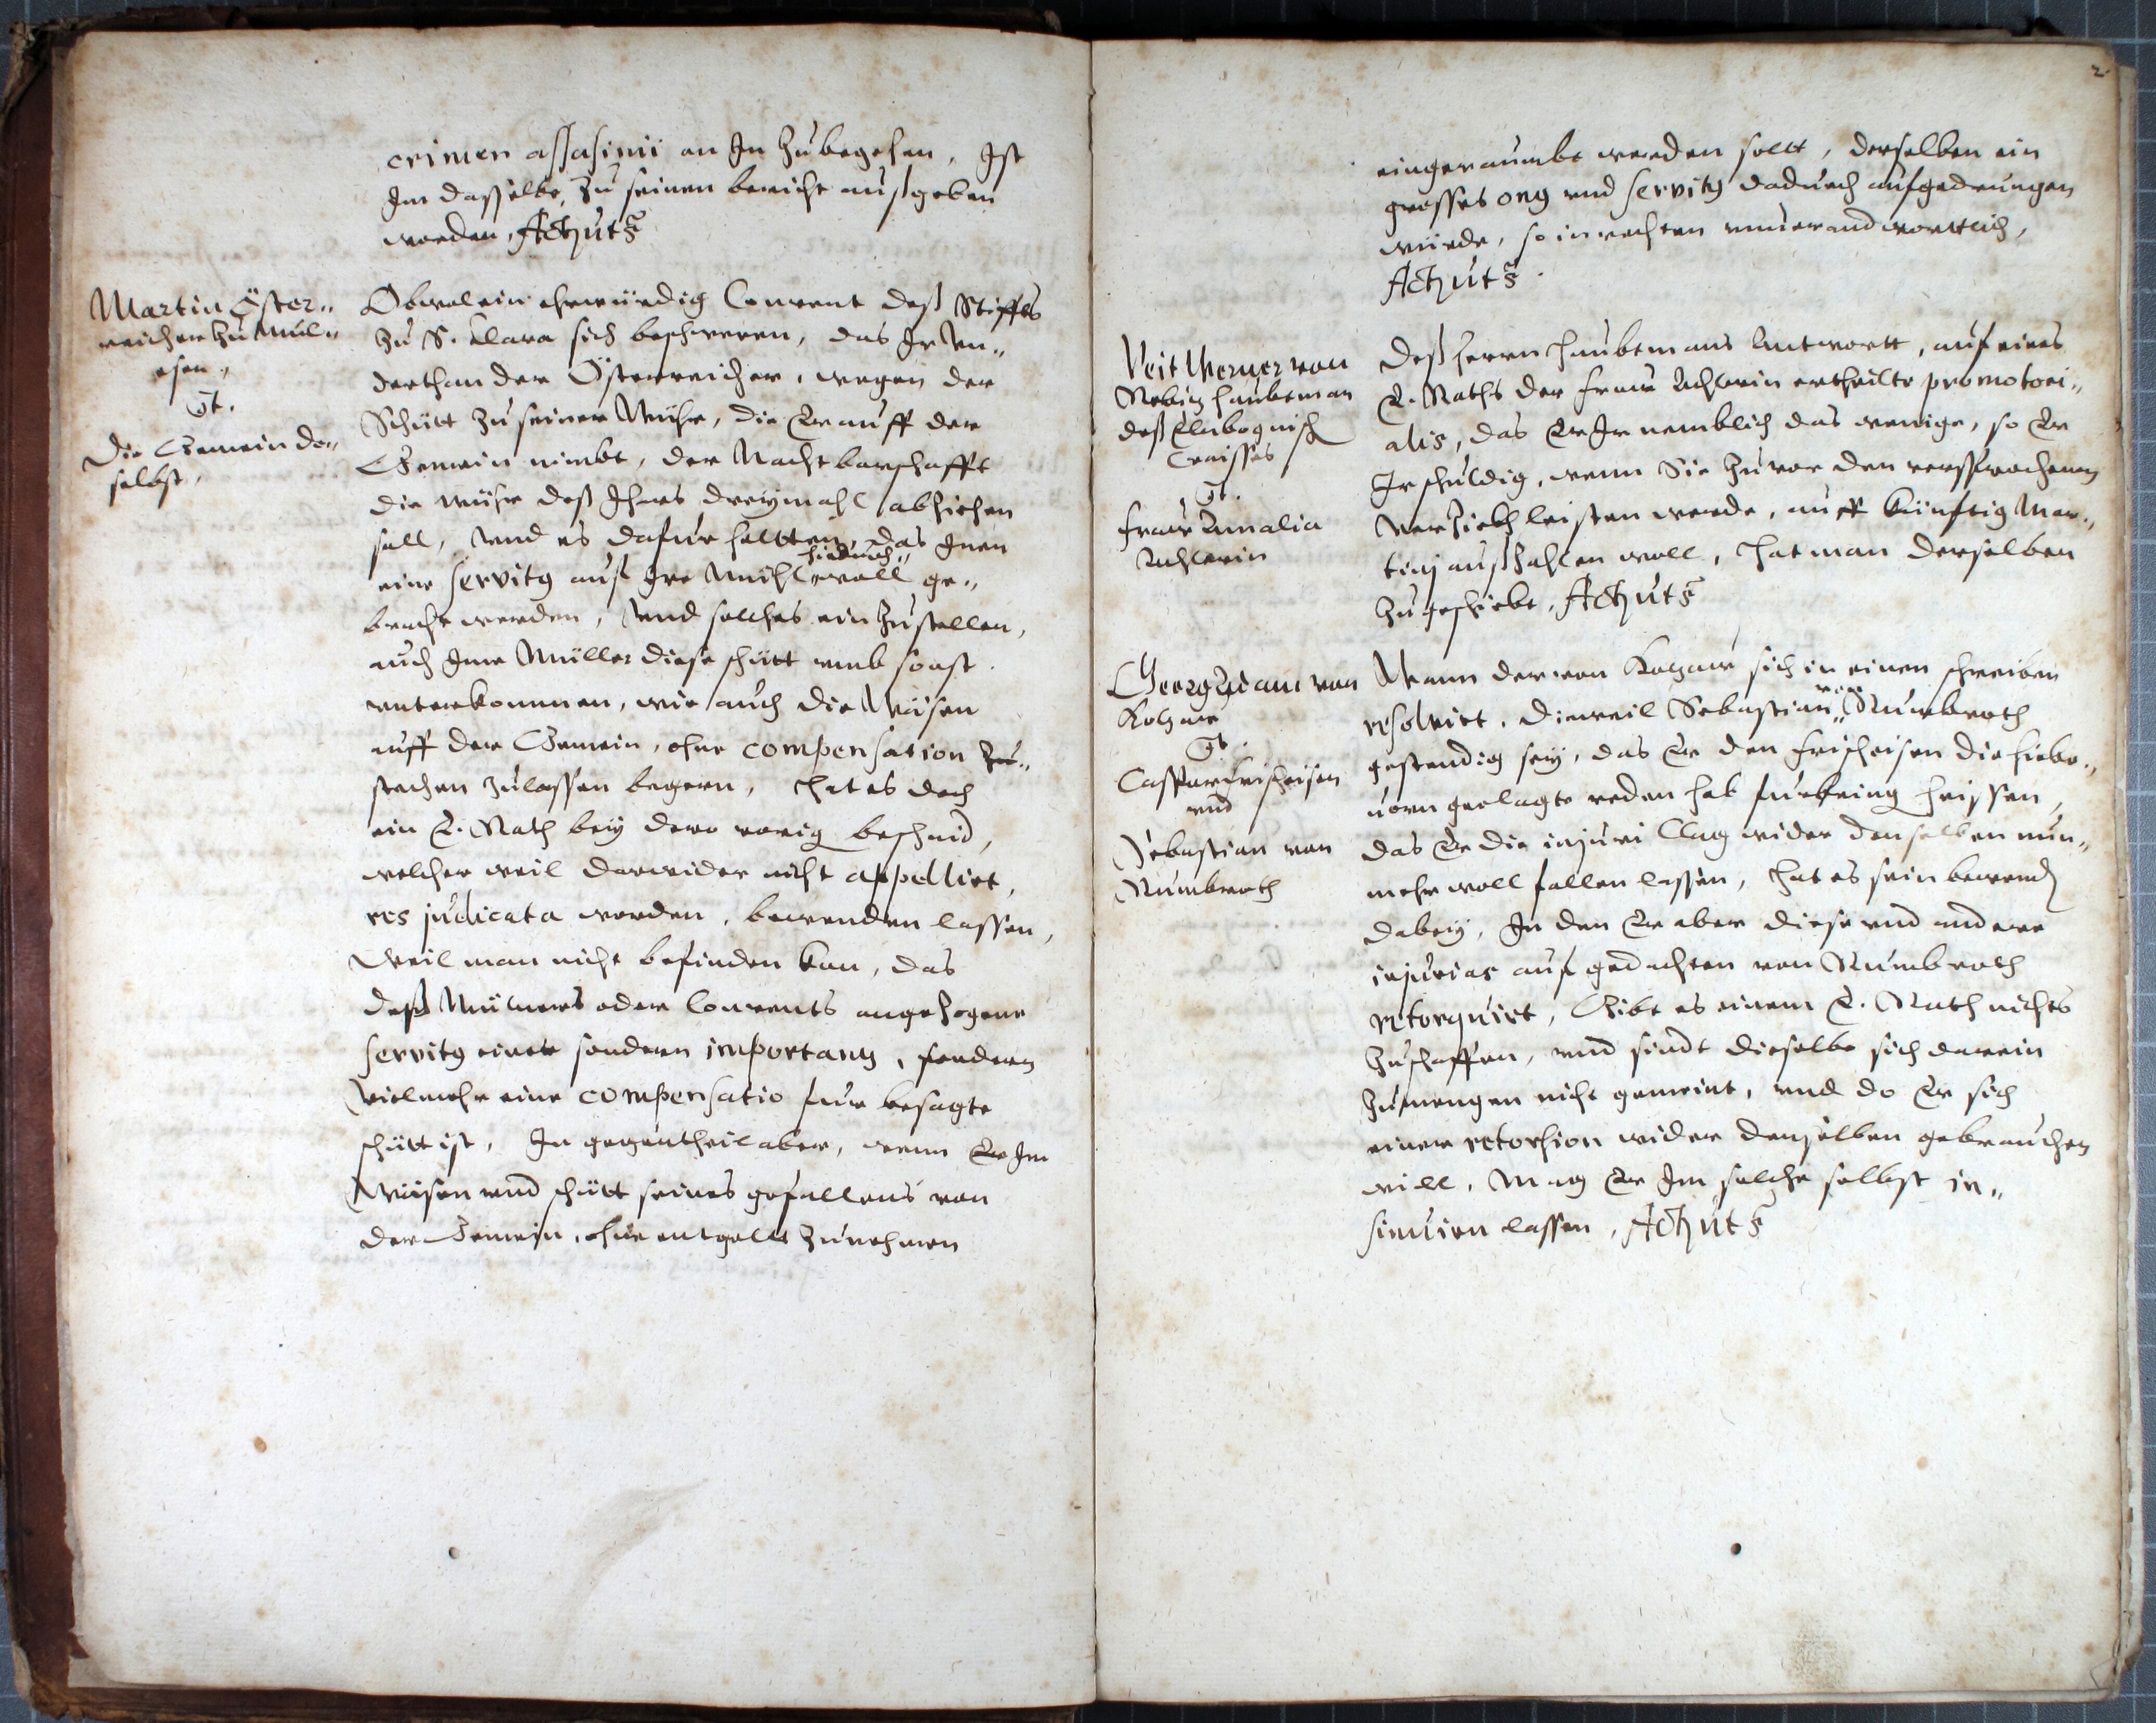 crimen assasinii an Im zubegehen, Ist
Im dasselbe, zu seinen bericht außgeben
worden, Act. ut s.
Martin Öster„
reicher zu Mül„
esen,
Ct.
Die Gemein do„
selbst,
Obwol ein ehrwürdig Convent deß Stiffts
zu S. Clara sich beschweren, das Ir Vn„
derthan der Österreicher, wegen der
Schütt zu seiner Mühr, die Er auff der
Gemein nimbt, der Nachtbarschafft
die Mühr deß Jhars dreymahl abziehen
soll, Vnd es dafur haltten, das Inen
hiedurch„
eine servitq auf Ire Mühl woll ge„
bracht werden, Vnd solches ein Zustellen,
auch Ime Müller diese schütt vmb sonst
unterkommen, wie auch die Wasen
auff der Gemein, ohne compensation zu„
stechen zulassen begern, Hat es doch
ein E. Rath bey dero vorig bescheid,
welcher weil darwider nicht appellirt,
res judicata worden, bewenden lassen,
Weil man nicht befinden kan, das
deß Mülners oder Convents angezogene
servitq einer sondern importantz, sondern
Vielmehr eine compensatio fur besagte
schütt ist, In gegentheil aber, wenn Er Im
Wasen vnd schütt seines gefallens von
der Gemein, ohne entgelt zunehmen
2.
eingeraumbt werden sollt, derselben ein
grosses onq vnd servitq dadurch aufgedrungen
würde, so in rechten vnuerandwortlich,
Act. ut s.
Veit Werner von
Rebitz haubtman
deß Elnbognisch
Craisses
Ct.
Fraw Amalia
Achlerin
Deß herrn haubtmans Antwortt, auf eines
E. Raths der Fraw Achlerin ertheilte promotori„
alis, das Er Ir nemblich das wenige, so Er
Ir schuldig, wenn Sie zuvor den versprochenen
Verzieht leisten werde, auff künftig Mar„
tinj außzahlen woll, hat man derselben
zugeschickt, Act. ut s.
Georg Adam von
Kotzaw
Ct.
Casspar Frischeisen
vnd
Sebastian von
Rumbroth
Wann der von Kotzaw sich in einen schreiben
resolvirt, dieweil Sebastian von Rumbroth
gestendig sey, das Er den Frischeisen die hiebe„
uorn geclagte reden hab furbring heissen,
das Er die injuri Clag wider denselben nun„
mehr woll fallen lassen, hat es sein bewend
dabey, In dem Er aber diese vnd andere
injurias auf gedachten von Rumbroth
retorquirt, Gibt es einem E. Rath nichts
zuschaffen, vnd sindt dieselbe sich darein
zumengen nicht gemeint, vnd do Er sich
einer retorsion wider denselben gebrauchen
will, Mag Er Im solche selbst in„
sinuirn lassen, Act. ut s.